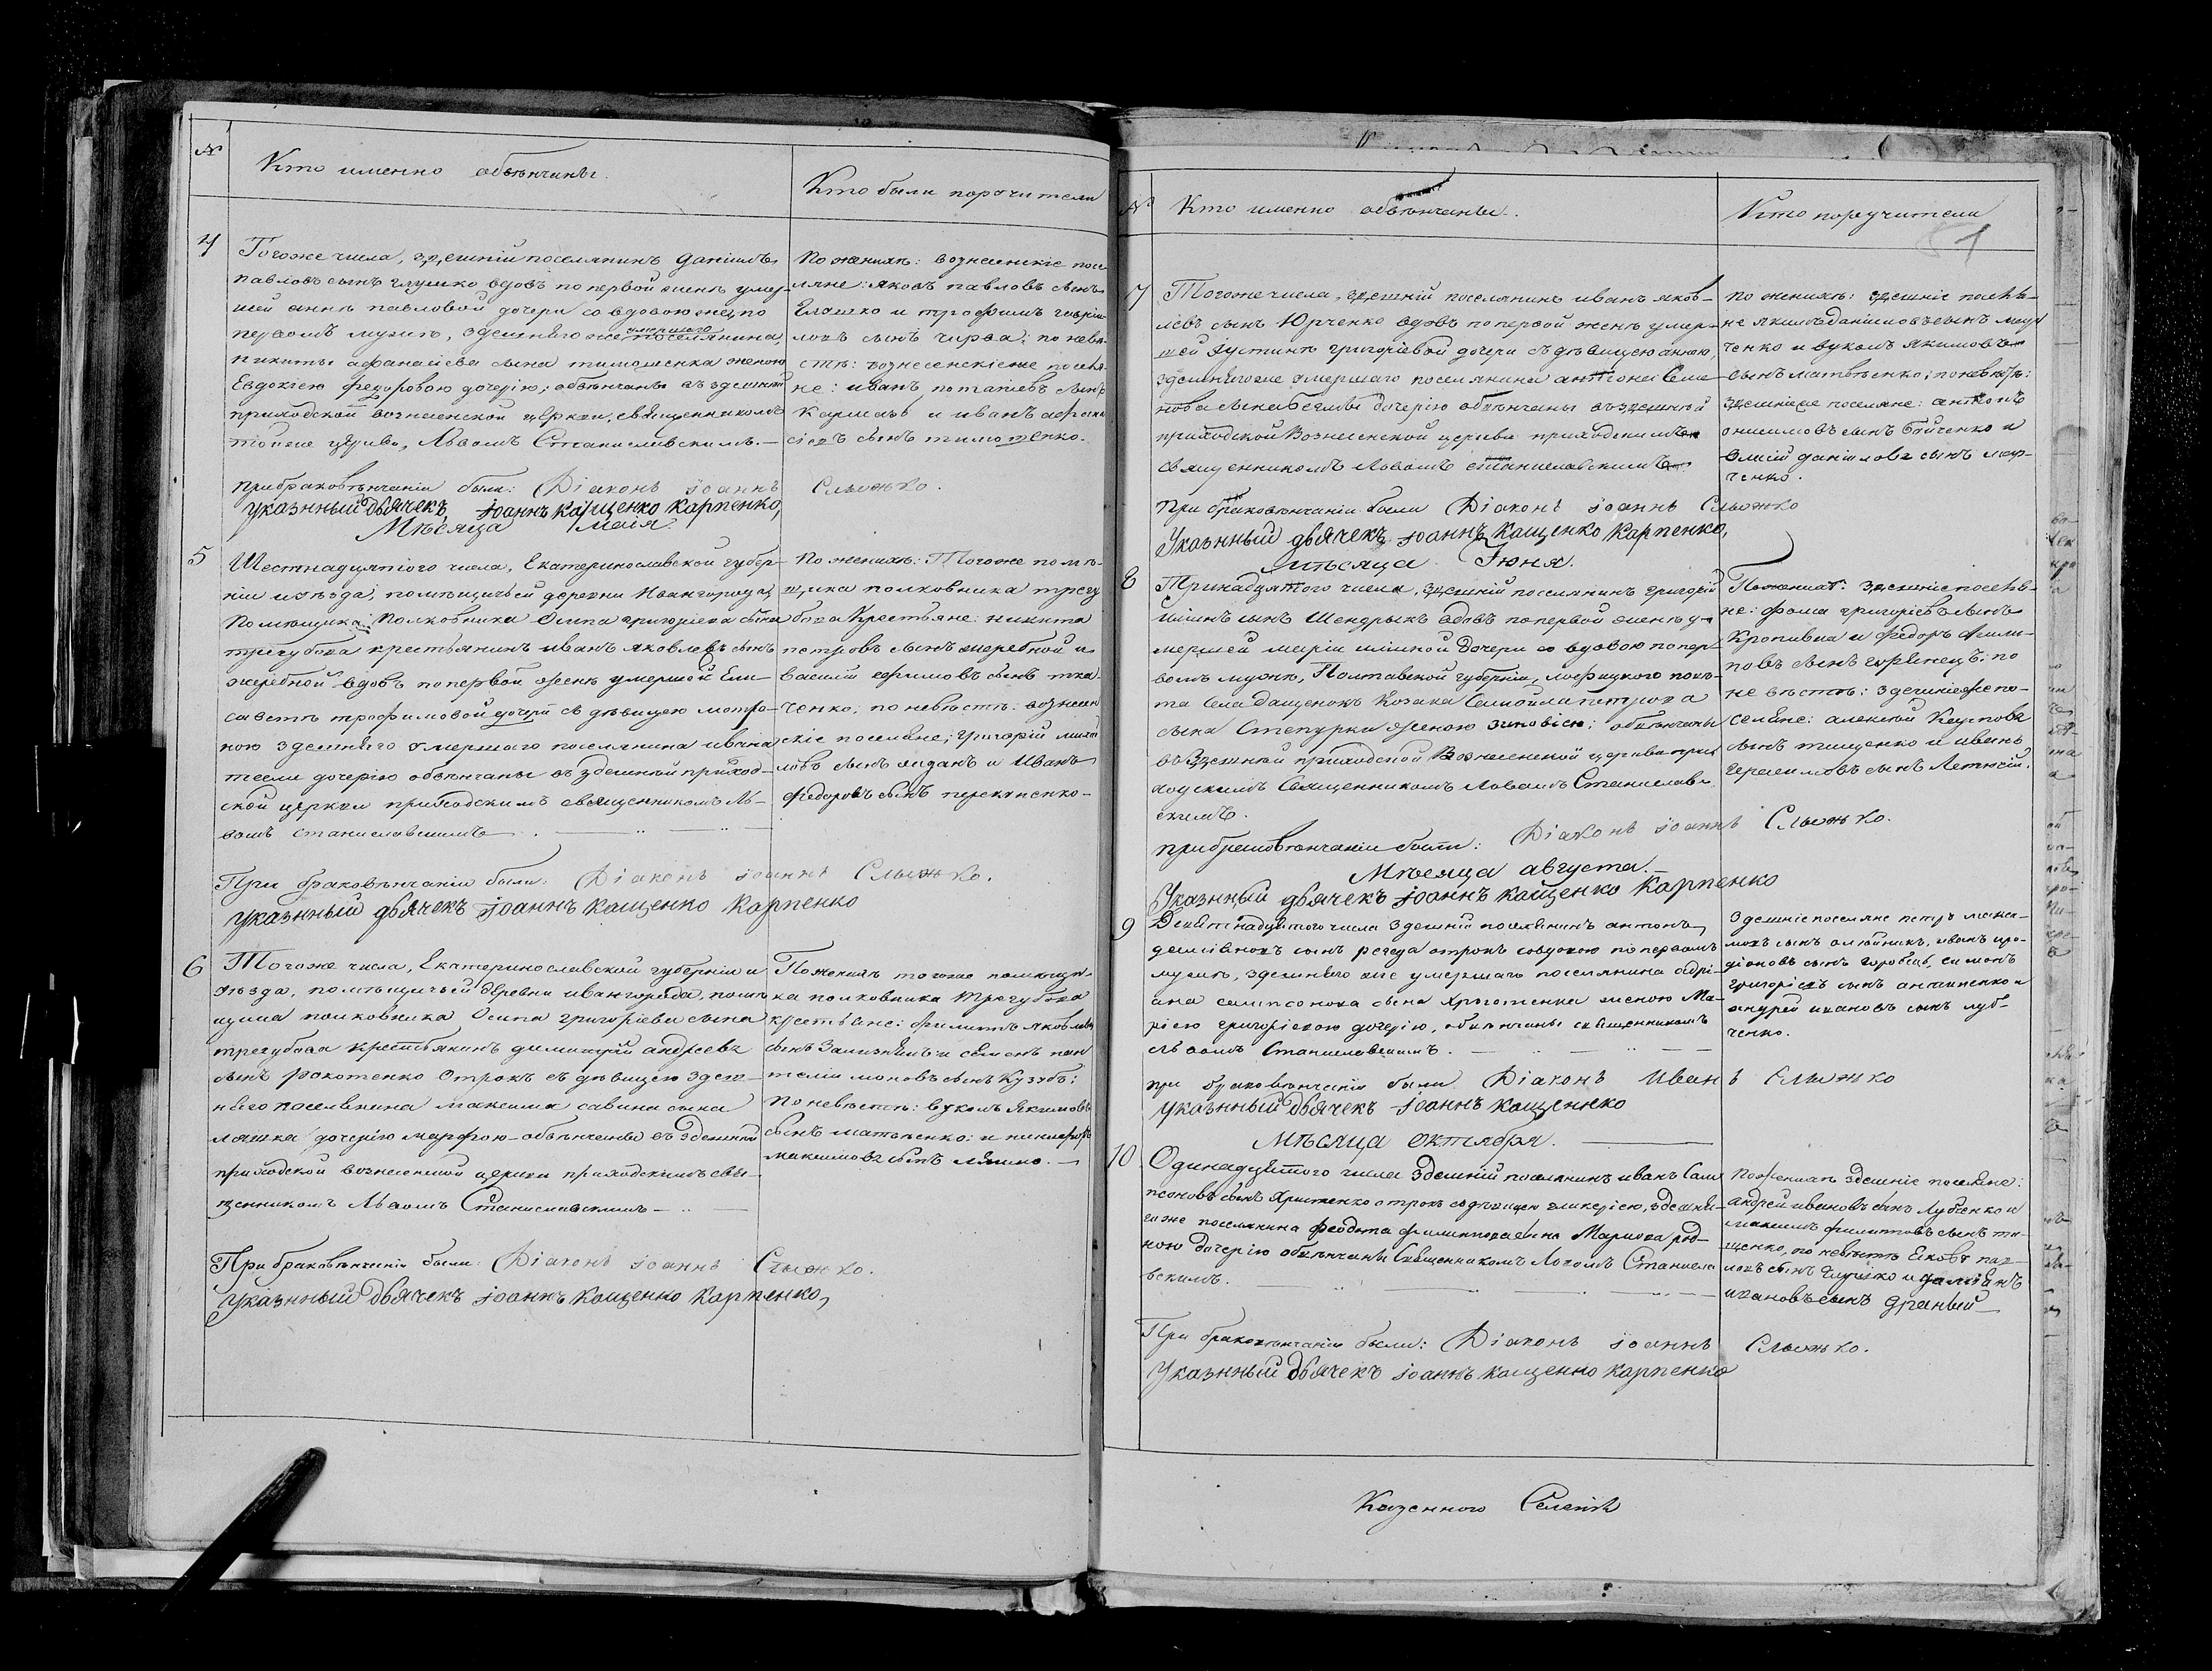 №
Кто именно обвѣнчаны.
Кто были поручители
4
Тогоже числа, здешній поселянинъ Даніилъ
павловъ сынъ глушко вдовъ по первой женѣ умер-
шей аннѣ павловой дочери со вдовою же, по
первомъ мужѣ, здешняго же умершаго поселянина,
никиты афанасіева сына тимошенка женою
Евдокіею федоровою дочерію; обвѣнчаны въ здешней
приходской вознесенской церкви, священникомъ
тойже церкви, Львомъ Станиславскимъ.—
По женихѣ: вознесенскіе посе
ляне: яковъ павловъ сынъ
Глошко и трофимъ гаврии
ловъ сынъ чирва; по невѣ
стѣ: вознесенскіеже поселя
не: иванъ потапіевъ сынъ
Кармазь и иванъ афана
сіевъ сынъ тимошенко.
При браковѣнчаніи были: Діаконъ іоаннъ Слюжко.
указнный дьячекъ іоаннъ кащенко карпенко,
Мѣсяца маія
5
Шестнадцятого числа, Екатеринославской губер-
ніи и уѣзда, помѣщичьей деревни Ивангорода,
Помѣщика Полковника Осипа григоріева сына
трегубова крестьянинъ иванъ яковлевъ сынъ
жеребной вдовъ по первой женѣ умершой Ели-
саветѣ трофимовой дочери съ дѣвицею матро-
ною здешняго умершаго поселянина ивана
тесли дочерію обвѣнчаны въ здешней приход-
ской церкви приходскимъ священникомъ Ль-
вомъ станиславскимъ
По женихѣ: Тогоже помѣ-
щика полковника трегу
бова Крестьяне: никита
петровъ сынъ жеребной и
василій ефимовъ сынъ тка-
ченко, по невѣстѣ: вознесен
скіе поселяне; григорій михай
ловъ сынъ жданъ и Иванъ
федоровъ сынъ перехисенко-
При браковѣнчаніи были: Діаконъ іоаннъ Слюжко.
указнный дьячекъ іоаннъ кащенко карпенко
6
Тогоже числа, Екатеринославской губерніи и
уѣзда, помѣщичьей деревни ивангорода, помѣ
щика полковника Осипа григоріева сына
трегубова крестьянинъ димитрій андреевъ
сынъ рокотенко Отрокъ съ дѣвицею здеш-
няго поселянина максима савина сына
ляшка дочерію марфою-обвѣнчаны въ здешней
приходской вознесенской церкви приходскимъ свя-
щенникомъ Львомъ Станиславскимъ-
По женихѣ тогоже помѣщи-
ка полковника трегубова
крестьяне: филиппъ яковлевъ
сынъ Зализнякъ и семенъ пан
телимоновъ сынъ Кузубъ;
по невѣстѣ: вуколъ якимовъ
сынъ матвѣенко: и никифоръ
максимовъ сынъ ляшко.—
При браковѣнчаніи были: Діаконъ іоаннъ Слюжко.
указнный дьячекъ іоаннъ кащенко карпенко,
№
Кто именно обвѣнчаны.
Кто поручители
7
Тогоже числа, здешній поселянинъ иванъ яков-
левъ сынъ Юрченко вдовъ по первой женѣ умер-
шей Іустинѣ григоріевой дочери съ дѣвицею анною,
здешнягоже умершаго поселянина антона Семе-
нова сына дочерію обвѣнчаны въ здешней
приходской Вознесенской церкви приходскимъ
священникомъ Львомъ Станиславскимъ
по женихѣ: здешніе поселя-
не якимъ даніиловъ сынъ
ченко и вуколъ якимовъ
сынъ матвѣенко; по невѣстѣ:
здешніеже поселяне: антонъ
онисимовъ сынъ бойченко и
данііловъ сынъ мар-
ченко.
При браковѣнчаніи были Діаконъ іоаннъ Слюжко
Указнный дьячекъ іоаннъ кащенко карпенко,
Мѣсяца Іюня.
8
Тринадцятого числа, здешній поселянинъ григорій
ильинъ сынъ Шендрыкъ вдовъ по первой женѣ у-
мершей маріи ильиной дочери со вдовою по пер-
вомъ мужѣ, Полтавской губерніи, повѣ-
та села дащенокъ Козака Самойла петрова
сына Степурки женою зиновіею; обвѣнчаны
въ здешней приходской Вознесенской церкви при
ходскимъ Священникомъ Львомъ Станислав-
скимъ.
По женихѣ: здешніе поселя-
не: фома григоріевъ сынъ
Кропивка и федоръ
повъ сынъ гурвинецъ; по
невѣстѣ: здешніеже по-
селяне: алексѣй Карповъ
сынъ тищенко и иванъ
герасимовъ сынъ Летючій.
при браковѣнчаніи были: Діаконъ іоаннъ Слюжко.
Мѣсяца августа.—
Указнный дьячекъ іоаннъ кащенко карпенко
9
Девятнадцятого числа здешній поселянинъ антонъ
сынъ регеда отрокъ со вдовою по первомъ
мужѣ, здешнягоже умершаго поселянина адрі-
ана сампсонова сына женою Ма-
ріею григоріевою дочерію, обвѣнчаны священникомъ
Львомъ Станиславскимъ.
Здешніе поселяне петръ макси-
мовъ сынъ олейникъ, иванъ иро-
діоновъ сынъ горобець, симонъ
григоріевъ сынъ антипенко и
андрей ивановъ сынъ луб-
ченко.
при браковѣнчаніи были Діаконъ Иванъ Слюжко
указнный дьячекъ іоаннъ кащенко
Мѣсяца октября.
10
Одинадцятого числа здешній поселянинъ иванъ Сам
псоновъ сынъ Христенко отрокъ съ дѣвицею гликеріею, здешня-
гоже поселянина феодота филиппова сына Маркова род-
ною дочерію обвѣнчаны Священникомъ Львомъ Станисла
вскимъ.
По женихѣ здешніе поселяне:
андрей ивановъ сынъ лубченко и
максимъ филипповъ сынъ ти-
щенко, по невѣстѣ Яковъ пав-
ловъ сынъ глушко и даміянъ
ивановъ сынъ драный
При браковѣнчаніи были: Діаконъ іоаннъ Слюжко.
Указнный дьячекъ іоаннъ кащенко карпенко
Казенного Селенія